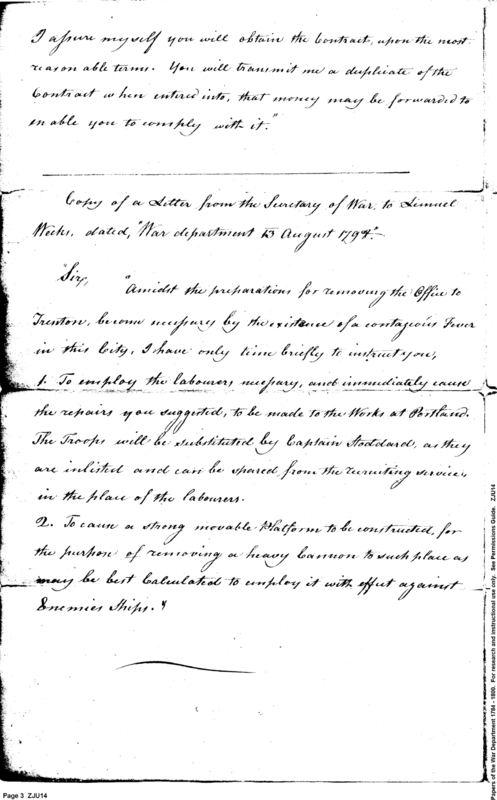 I assure myself you will obtain the Contract, upon the most
reasonable terms. You will transmit me a duplicate of the
Contract when entired into, that money may be forwarded to
enable you to comply with it."
Copy of a Letter from the Secretary of War, to Lemuel
Weeks, dated, "War department 13 August 1798".
"Sir,
"Amidst the preparations for removing the Office to
Trenton, become necessary by the existence of a contageous Fever
in this City, I have only time briefly to instruct you,
1. To employ the labourers necessary, and immediately cause
the repairs you suggested, to be made to the Works at Portland.
The Troops will be substituted by Captain Stoddard, as they
are inlisted and can be spared from the recruiting service,
in the place of the labourers.
2. To cause a strong movable Platform to be constructed, for
the purpose of removing a heavy Cannon to such place as
may be best Calculated to employ it with effect against
Enemies Ships."
Page 3 ZJU14
Papers of the War Department 1784 - 1800. For research and instructional use only. See Permissions Guide. ZJU14